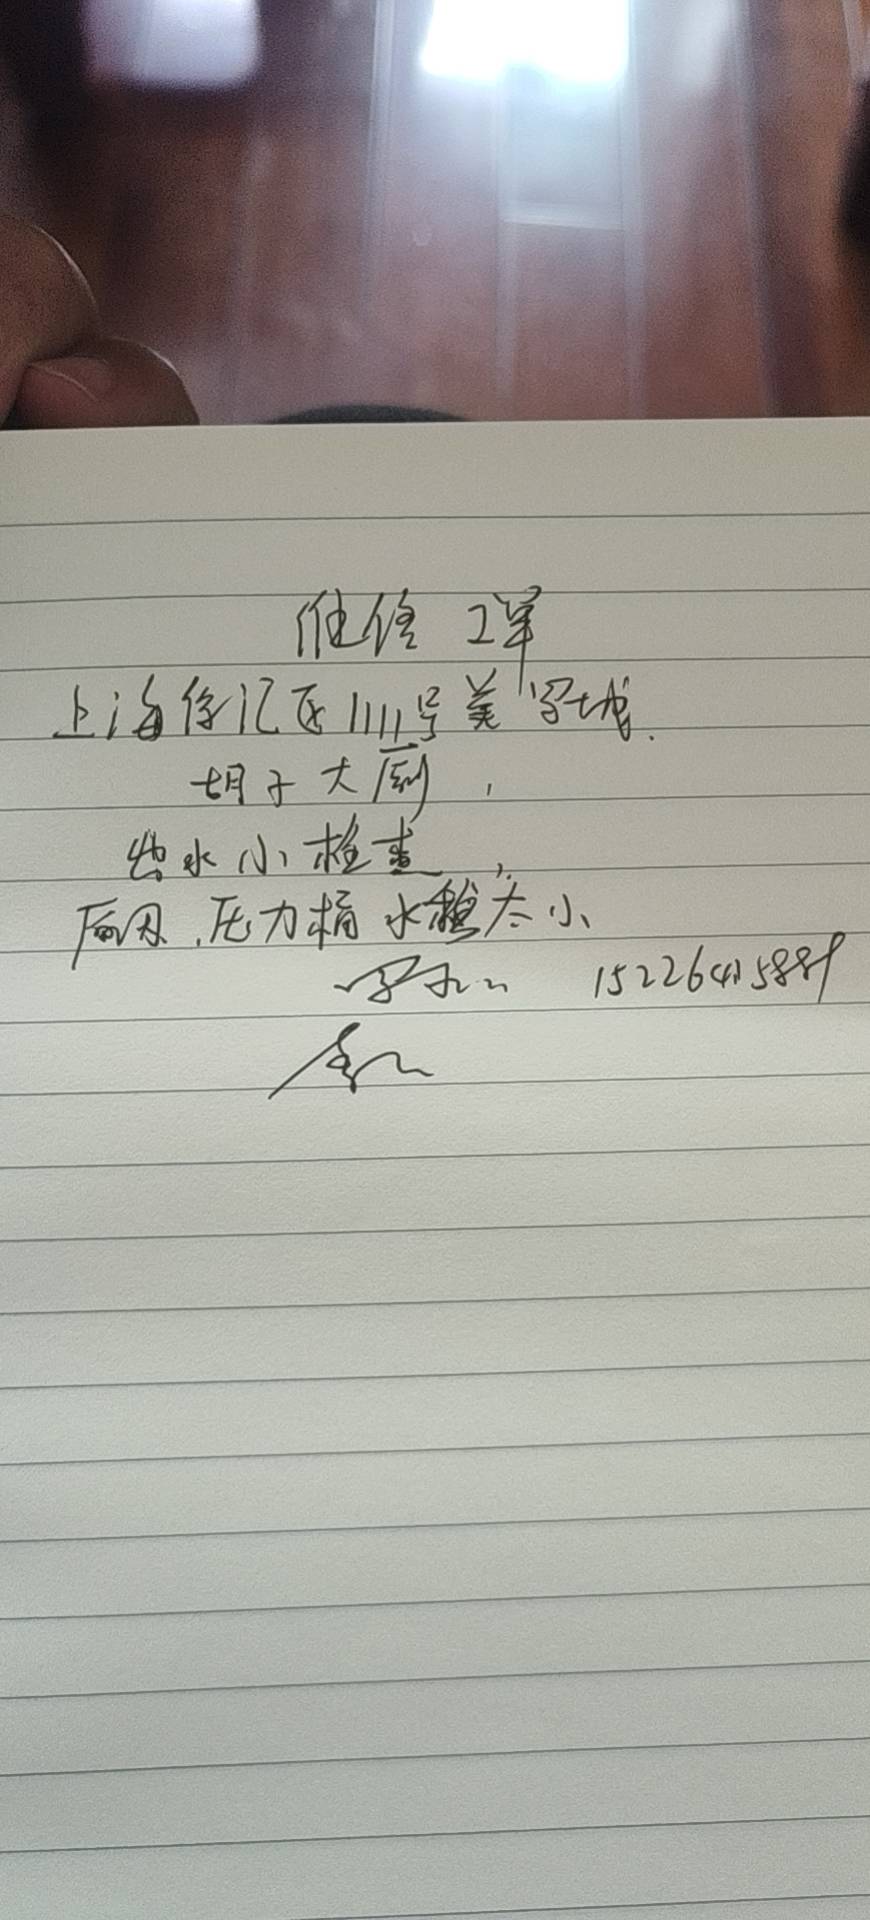 维修工单
上海徐汇区1111号美罗城.
胡子大厨,
出水小检查,
原因,压力桶水种太小
15226415889